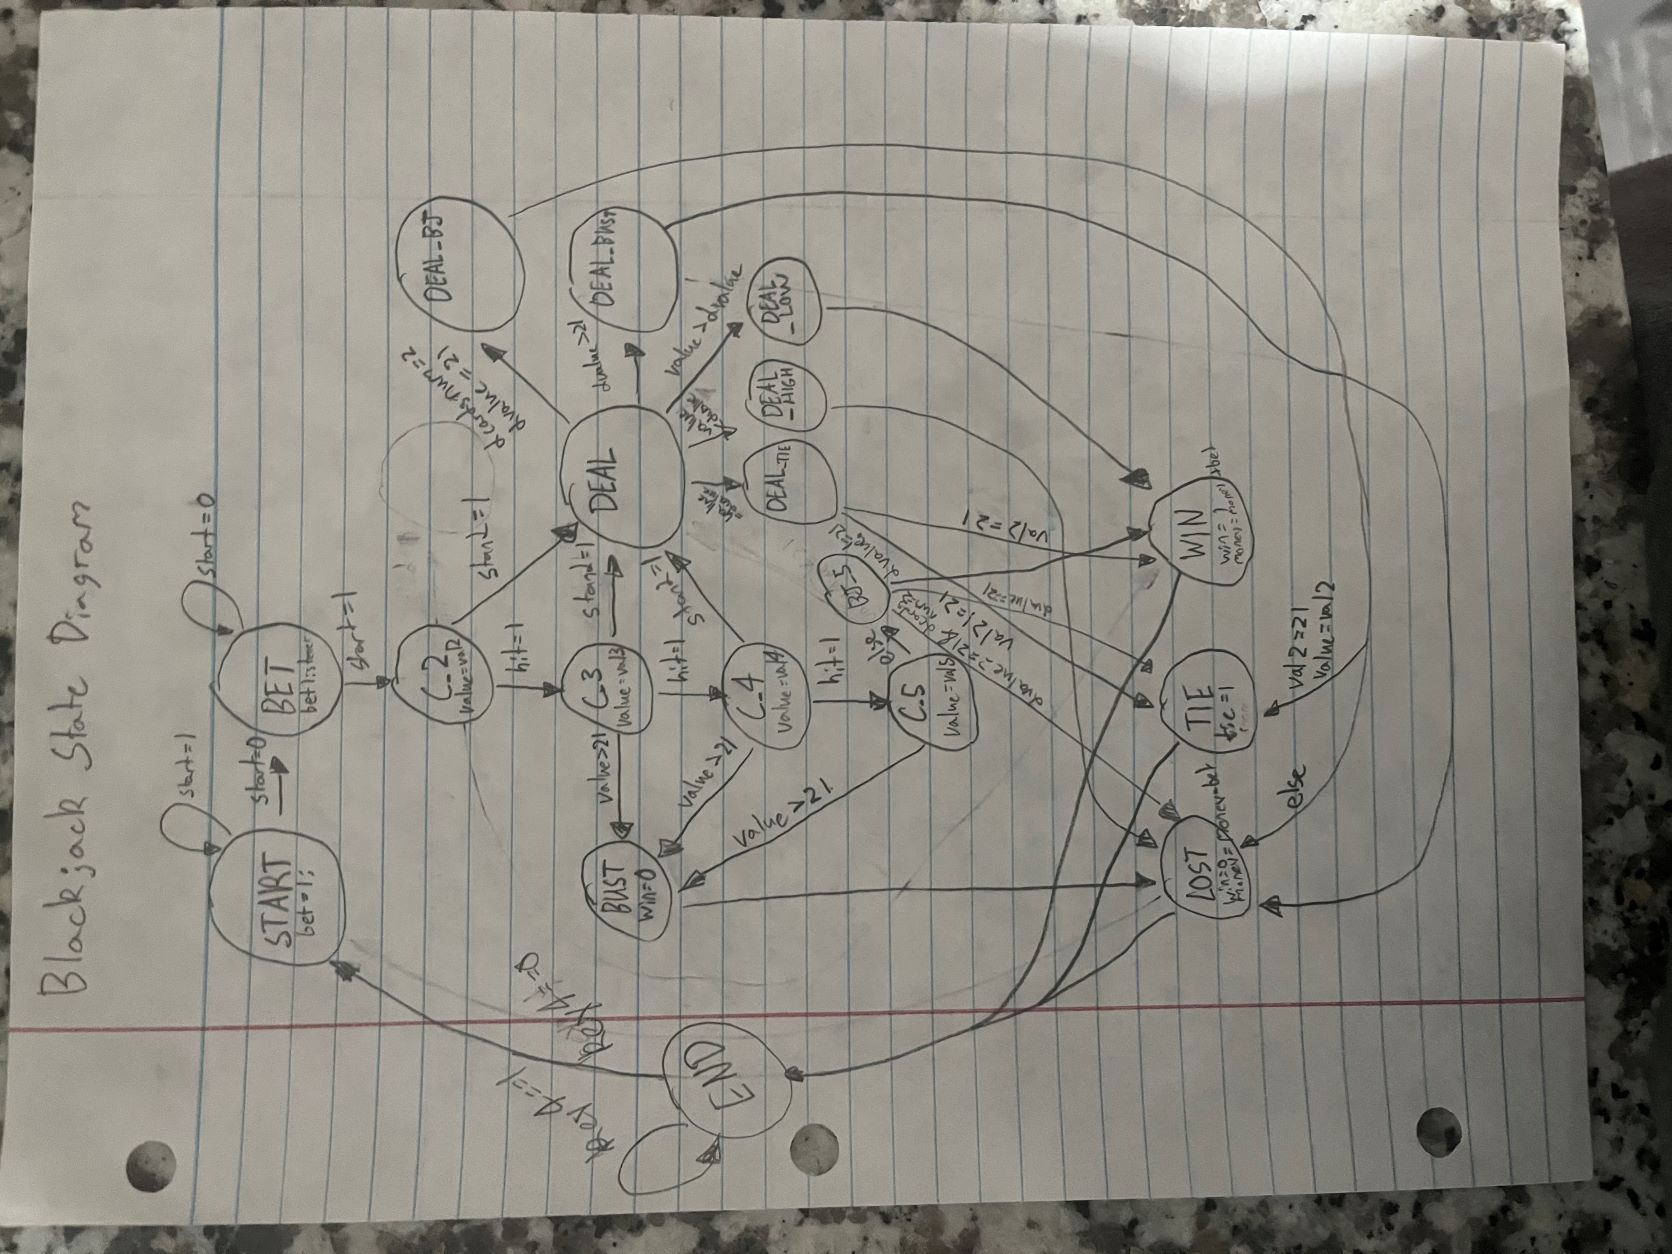 Blackjack State Diagram
start=1
start=0
start=0
START
bet=1;
BET
betlistener
start=1
C_2
value=val2
stand=1
dcardsnum=2
dvalue=21
DEAL_BJ
hit=1
key4==1
key4!==0
BUST
win=0
value>21
C_3
value=val3
stand=1
DEAL
dvalue>21
DEAL_BUST
hit=1
stand=1
value>21
value
=dvalue
value
<dvalue
value>dvalue
END
C_4
value=val4
DEAL_TIE
DEAL
_HIGH
DEAL
_LOW
value>21
hit=1
BJ_5
else
dvalue!=21
C_5
value=val5
dvalue==21&
dcards
num=2
val2!=21
dvalue=21
val2=21
LOST
win=0
money=money-bet
TIE
tie=1
WIN
win=1
money=money+bet
else
val2=21
value=val2